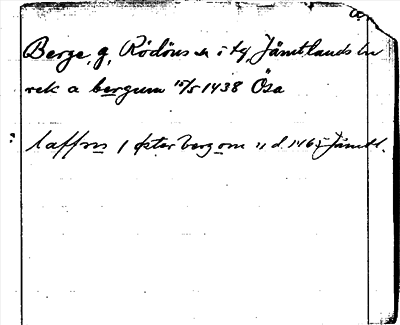 Berge, g, Rödöns sn i ty, Jämtlands län
rek a bergum 15/5 1438 Ösa
laffrns / øster bergom " d. 1465 Jämtl.